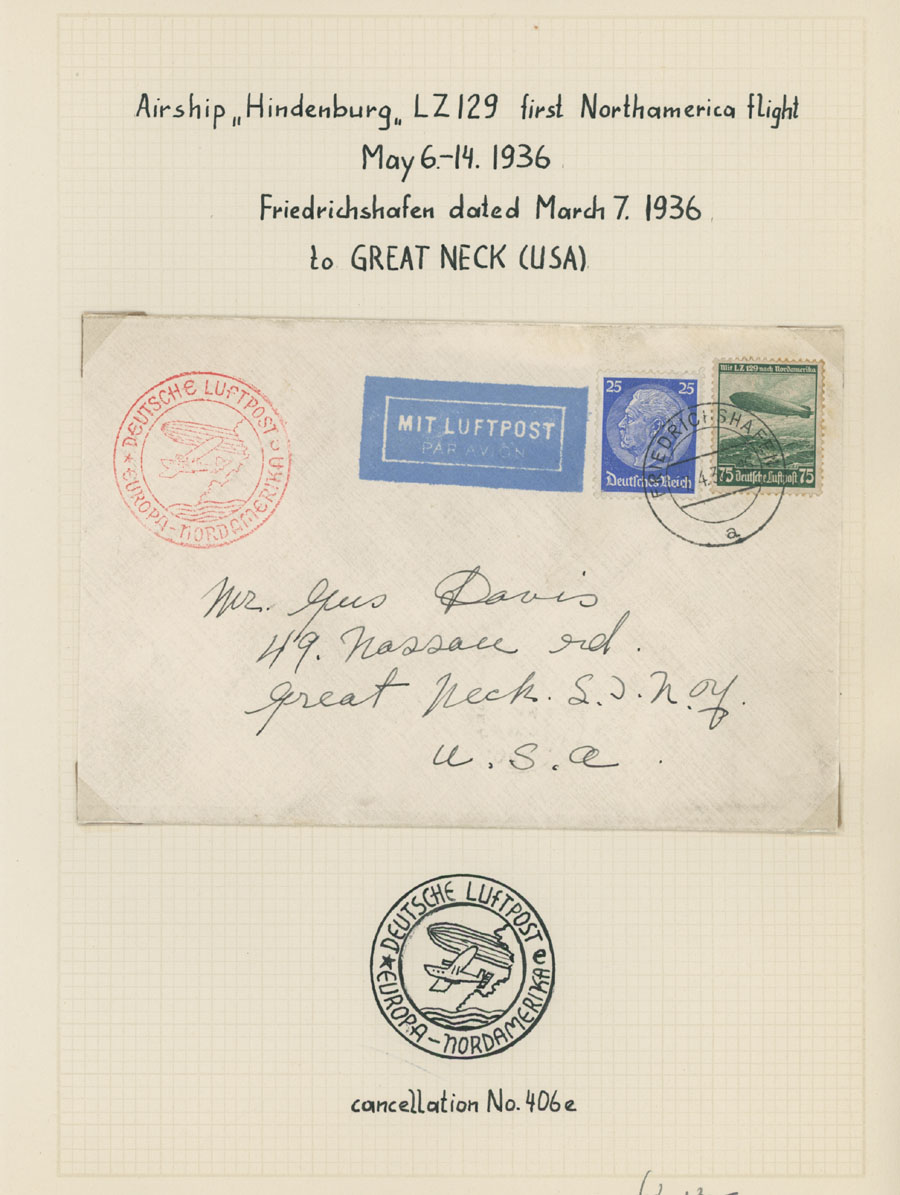 Airship „Hindenburg„ LZ129 first Northamerica flight
May 6.-14. 1936
Friedrichshafen dated March 7. 1936
to GREAT NECK (USA)
DEUTSCHE LUFTPOST
EUROPA-NORDAMERIKA
MIT LUFTPOST
PAR AVION
25 25
Deutsches Reich
Mit LZ 129 nach Nordamerika
75 Deutsche Luftpost 75
FRIEDRICHSHAFEN
a
Mr. Gus Davis
49. Nassau rd.
Great Neck. L.I. N.Y.
U.S.A.
DEUTSCHE LUFTPOST
EUROPA-NORDAMERIKA
cancellation No. 406e